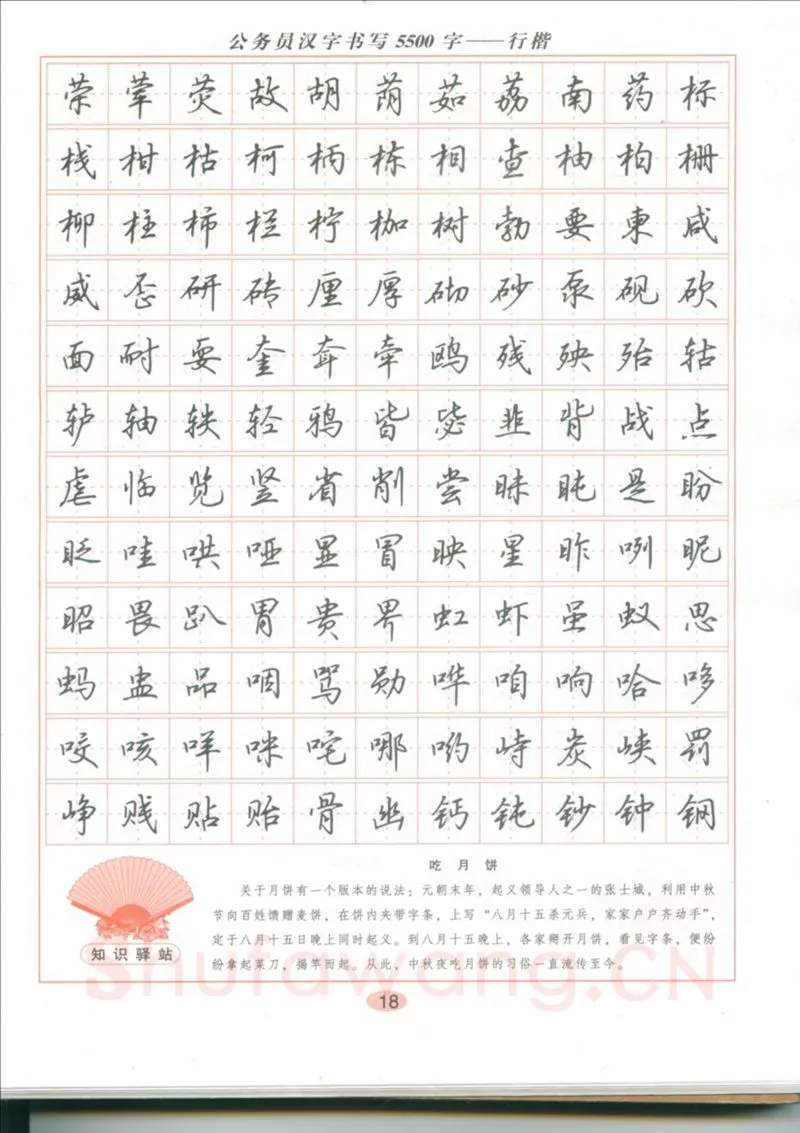 公务员汉字书写5500字——行楷
荣荤荧故胡荫茹荔南药标
栈柑枯柯柄栋相查柚柏栅
柳柱柿栏柠枷树勃要柬咸
威歪研砖厘厚砌砂泵砚砍
面耐耍奎耷牵鸥残殃殆轱
轳轴轶轻鸦皆毖韭背战点
虐临览竖省削尝昧盹是盼
眨哇哄哑显冒映星昨咧昵
昭畏趴胃贵界虹虾虽蚁思
蚂盅品咽骂勋哗咱响哈哆
咬咳咩咪咤哪哟峙炭峡罚
峥贱贴贻骨幽钙钝钞钟钢
吃月饼
关于月饼有一个版本的说法：元朝末年，起义领导人之一的张士城，利用中秋
节向百姓馈赠麦饼，在饼内夹带字条，上写“八月十五杀元兵，家家户户齐动手”，
定于八月十五日晚上同时起义。到八月十五晚上，各家掰开月饼，看见字条，便纷
纷拿起菜刀，揭竿而起。从此，中秋夜吃月饼的习俗一直流传至今。
知识驿站
Shufawang.CN
18